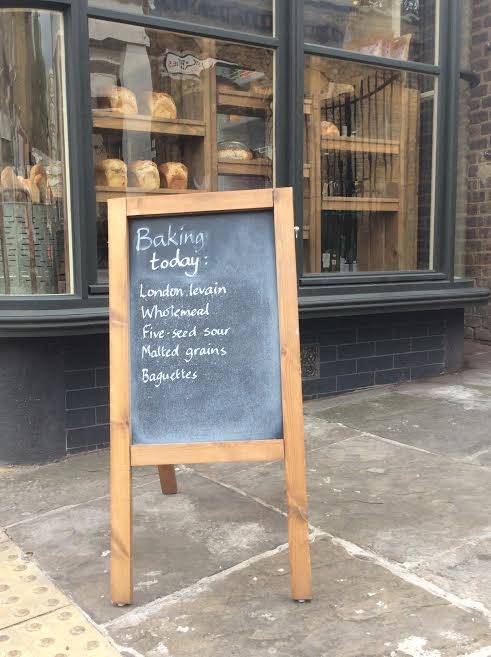 Baking
today:
London levain
Wholemeal
Five-seed sour
Malted grains
Baguettes